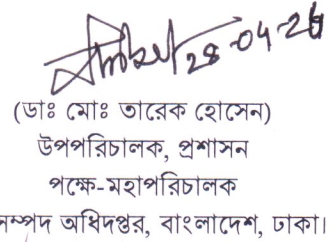 28-04-26
(ডাঃ মোঃ তারেক হোসেন)
উপপরিচালক, প্রশাসন
পক্ষে-মহাপরিচালক
সম্পদ অধিদপ্তর, বাংলাদেশ, ঢাকা।